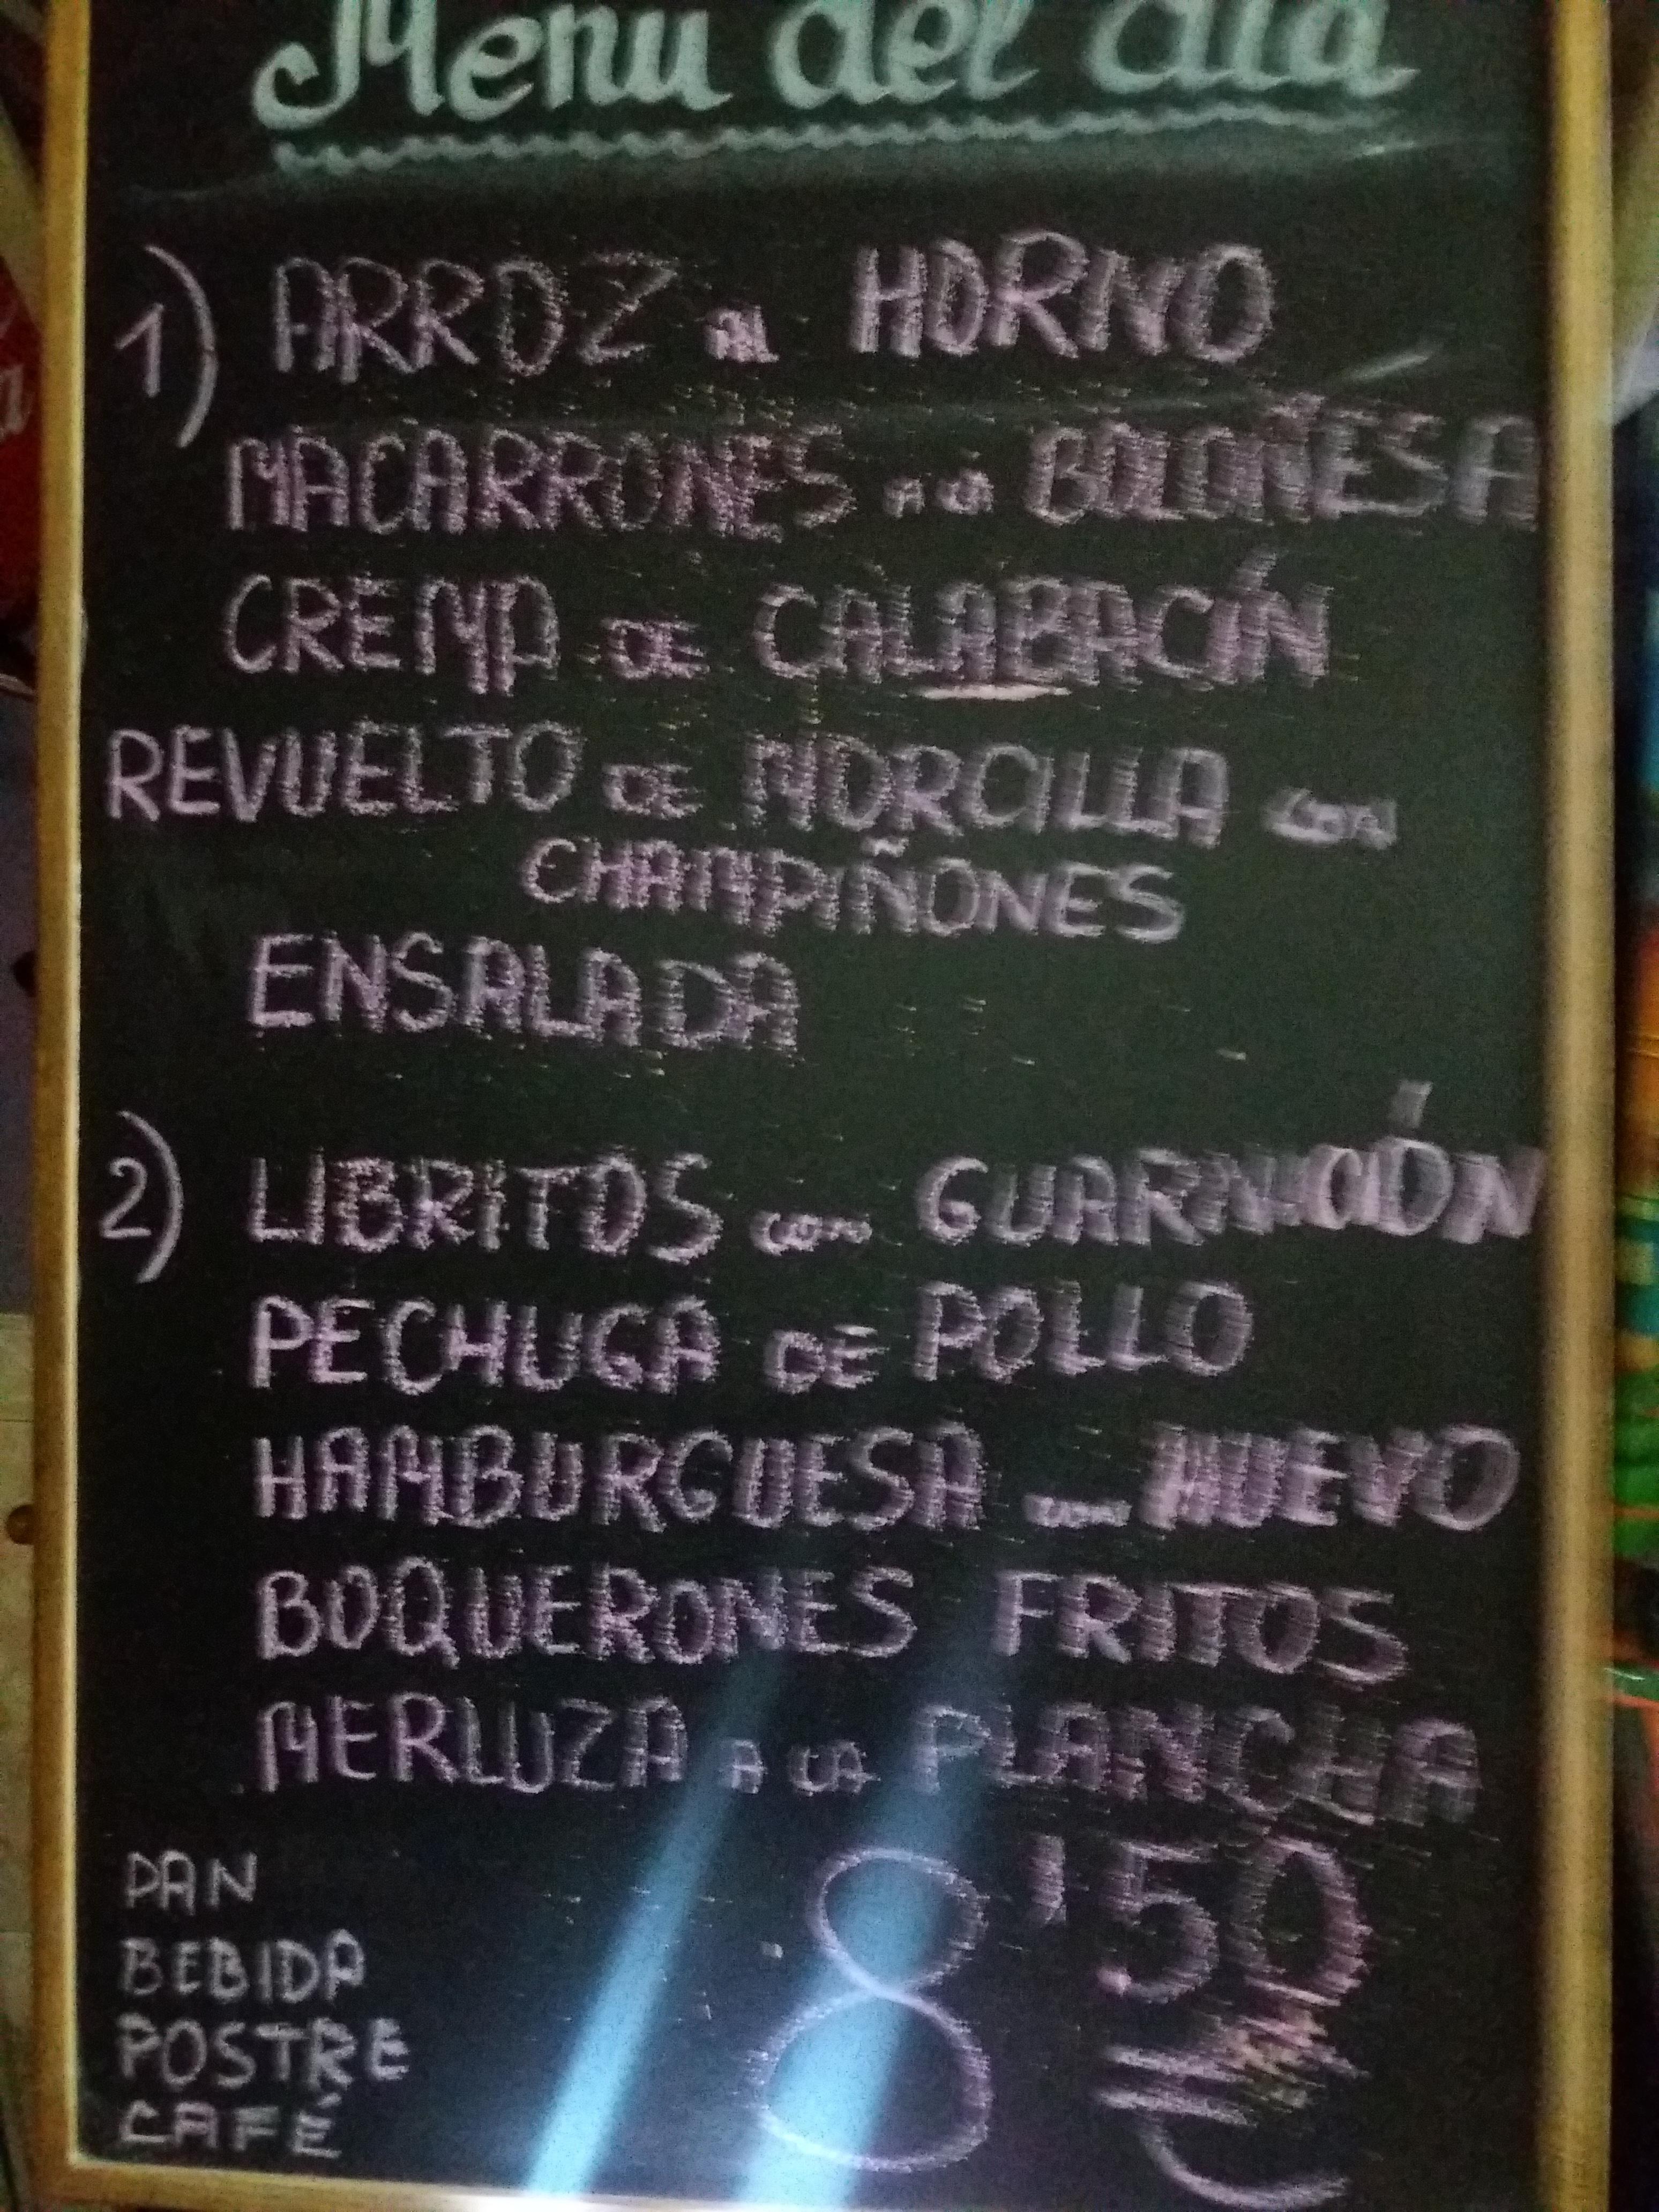 Menu del día
1) ARROZ al HORNO
MACARRONES A LA BOLOÑESA
CREMA DE CALABACÍN
REVUELTO DE MORCILLA con
CHAMPIÑONES
ENSALADA
2) LIBRITOS con GUARNICIÓN
PECHUGA DE POLLO
HAMBURGUESA con HUEVO
BOQUERONES FRITOS
MERLUZA A LA PLANCHA
PAN
BEBIDA
POSTRE
CAFÉ
8'50 €